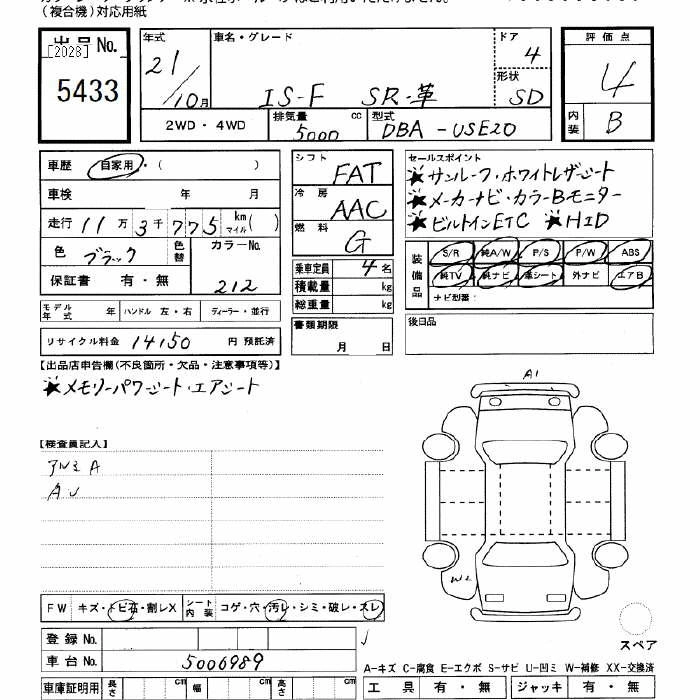 (複合機)対応用紙
出品No.
[2028]
5433
年式 21/10月
車名・グレード IS-F SR・革
ドア 4
形状 SD
評価点 4
内装 B
2WD・4WD
排気量 5000 cc
型式 DBA-USE20
車歴 自家用・( )
車検 年 月
走行 11万3千775 km マイル( )
色 ブラック 色替 カラーNo. 212
保証書 有・無
モデル年式 年 ハンドル 左・右 ディーラー・並行
リサイクル料金 14150 円 預託済
シフト FAT
冷房 AAC
燃料 G
乗車定員 4名
積載量 kg
総重量 kg
書類期限
月 日
セールスポイント
★サンルーフ・ホワイトレザーシート
★メーカーナビ・カラーBモニター
★ビルトインETC ★HID
装備品
S/R 純A/W P/S P/W ABS
純TV 純ナビ 革シート 外ナビ エアB
ナビ型番:
後日品
【出品店申告欄(不良箇所・欠品・注意事項等)】
★メモリーパワーシート・エアシート
【検査員記入】
アルミ A
A U
A1
W2
FW キズ・トビ石・割レX シート内装 コゲ・穴・汚レ・シミ・破レ・スレ
登録No.
車台No. 5006989
車庫証明用 長さ cm 幅 cm 高さ cm
スペア
A-キズ C-腐食 E-エクボ S-サビ U-凹ミ W-補修 XX-交換済
工具 有・無 ジャッキ 有・無